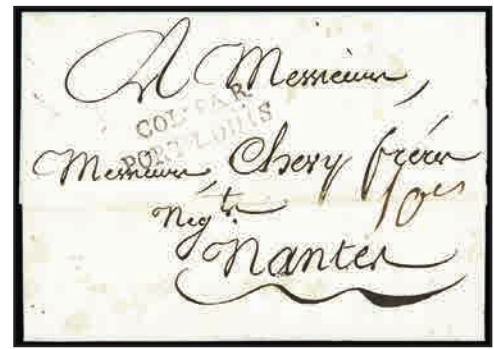 A Messieurs,
COL. PAR
PORT-LOUIS
Messieurs, frères
Neg.ts
Nantes